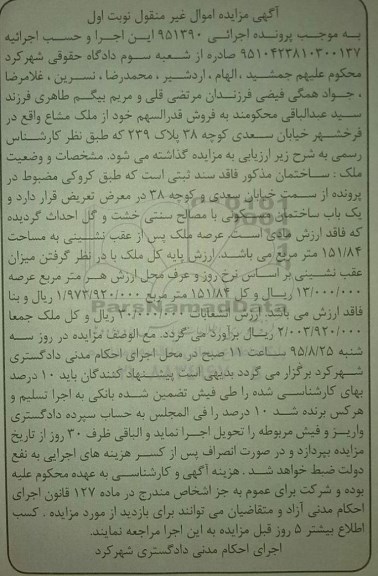 آگهی مزایده اموال غیر منقول نوبت اول
به موجب پرونده اجرائی ۹۵۱۳۹۰ این اجرا و حسب اجرائیه
۹۵۱۰۴۲۳۸۱۰۳۰۰۱۳۷ صادره از شعبه سوم دادگاه حقوقی شهرکرد
محکوم علیهم جمشید ، الهام ، اردشیر ، محمدرضا ، نسرین ، غلامرضا
، جواد همگی فیضی فرزندان مرتضی قلی و مریم بیگم طاهری فرزند
سید عبدالباقی محکومند به فروش قدرالسهم خود از ملک مشاع واقع در
فرخشهر خیابان سعدی کوچه ۳۸ پلاک ۲۳۹ که طبق نظر کارشناس
رسمی به شرح زیر ارزیابی به مزایده گذاشته می شود. مشخصات و وضعیت
ملک : ساختمان مذکور فاقد سند ثبتی است که طبق کروکی مضبوط در
پرونده از سمت خیابان سعدی و کوچه ۳۸ در معرض تعریض قرار دارد و
یک باب ساختمان مسکونی با مصالح سنتی خشت و گل احداث گردیده
که فاقد ارزش مادی است. عرصه ملک پس از عقب نشینی به مساحت
۱۵۱/۸۴ متر مربع می باشد. ارزش پایه کل ملک با در نظر گرفتن میزان
عقب نشینی بر اساس نرخ روز و عرف محل ارزش هر متر مربع عرصه
۱۳/۰۰۰/۰۰۰ ریال و کل ۱۵۱/۸۴ متر مربع ۱/۹۷۳/۹۲۰/۰۰۰ ریال و بنا
فاقد ارزش می باشد ارزش انشعابات ریال و کل ملک جمعا
۲/۰۰۳/۹۲۰/۰۰۰ ریال برآورد می گردد. مع الوصف مزایده در روز سه
شنبه ۹۵/۸/۲۵ ساعت ۱۱ صبح در محل اجرای احکام مدنی دادگستری
شهرکرد برگزار می گردد بدیهی است پیشنهاد کنندگان باید ۱۰ درصد
بهای کارشناسی شده را طی فیش تضمین شده بانکی به اجرا تسلیم و
هرکس برنده شد ۱۰ درصد را فی المجلس به حساب سپرده دادگستری
واریز و فیش مربوطه را تحویل اجرا نماید و الباقی ظرف ۳۰ روز از تاریخ
مزایده بپردازد و در صورت انصراف پس از کسر هزینه های اجرایی به نفع
دولت ضبط خواهد شد . هزینه آگهی و کارشناسی به عهده محکوم علیه
بوده و شرکت برای عموم به جز اشخاص مندرج در ماده ۱۲۷ قانون اجرای
احکام مدنی آزاد و متقاضیان می توانند برای بازدید از مورد مزایده . کسب
اطلاع بیشتر ۵ روز قبل مزایده به این اجرا مراجعه نمایند.
اجرای احکام مدنی دادگستری شهرکرد